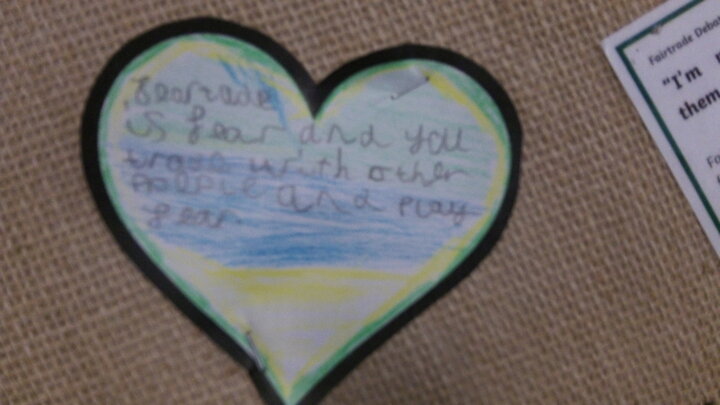 feartrade
is fear and you
trade with other
people and play
fear.
Fairtrade Deba
"I'm
them